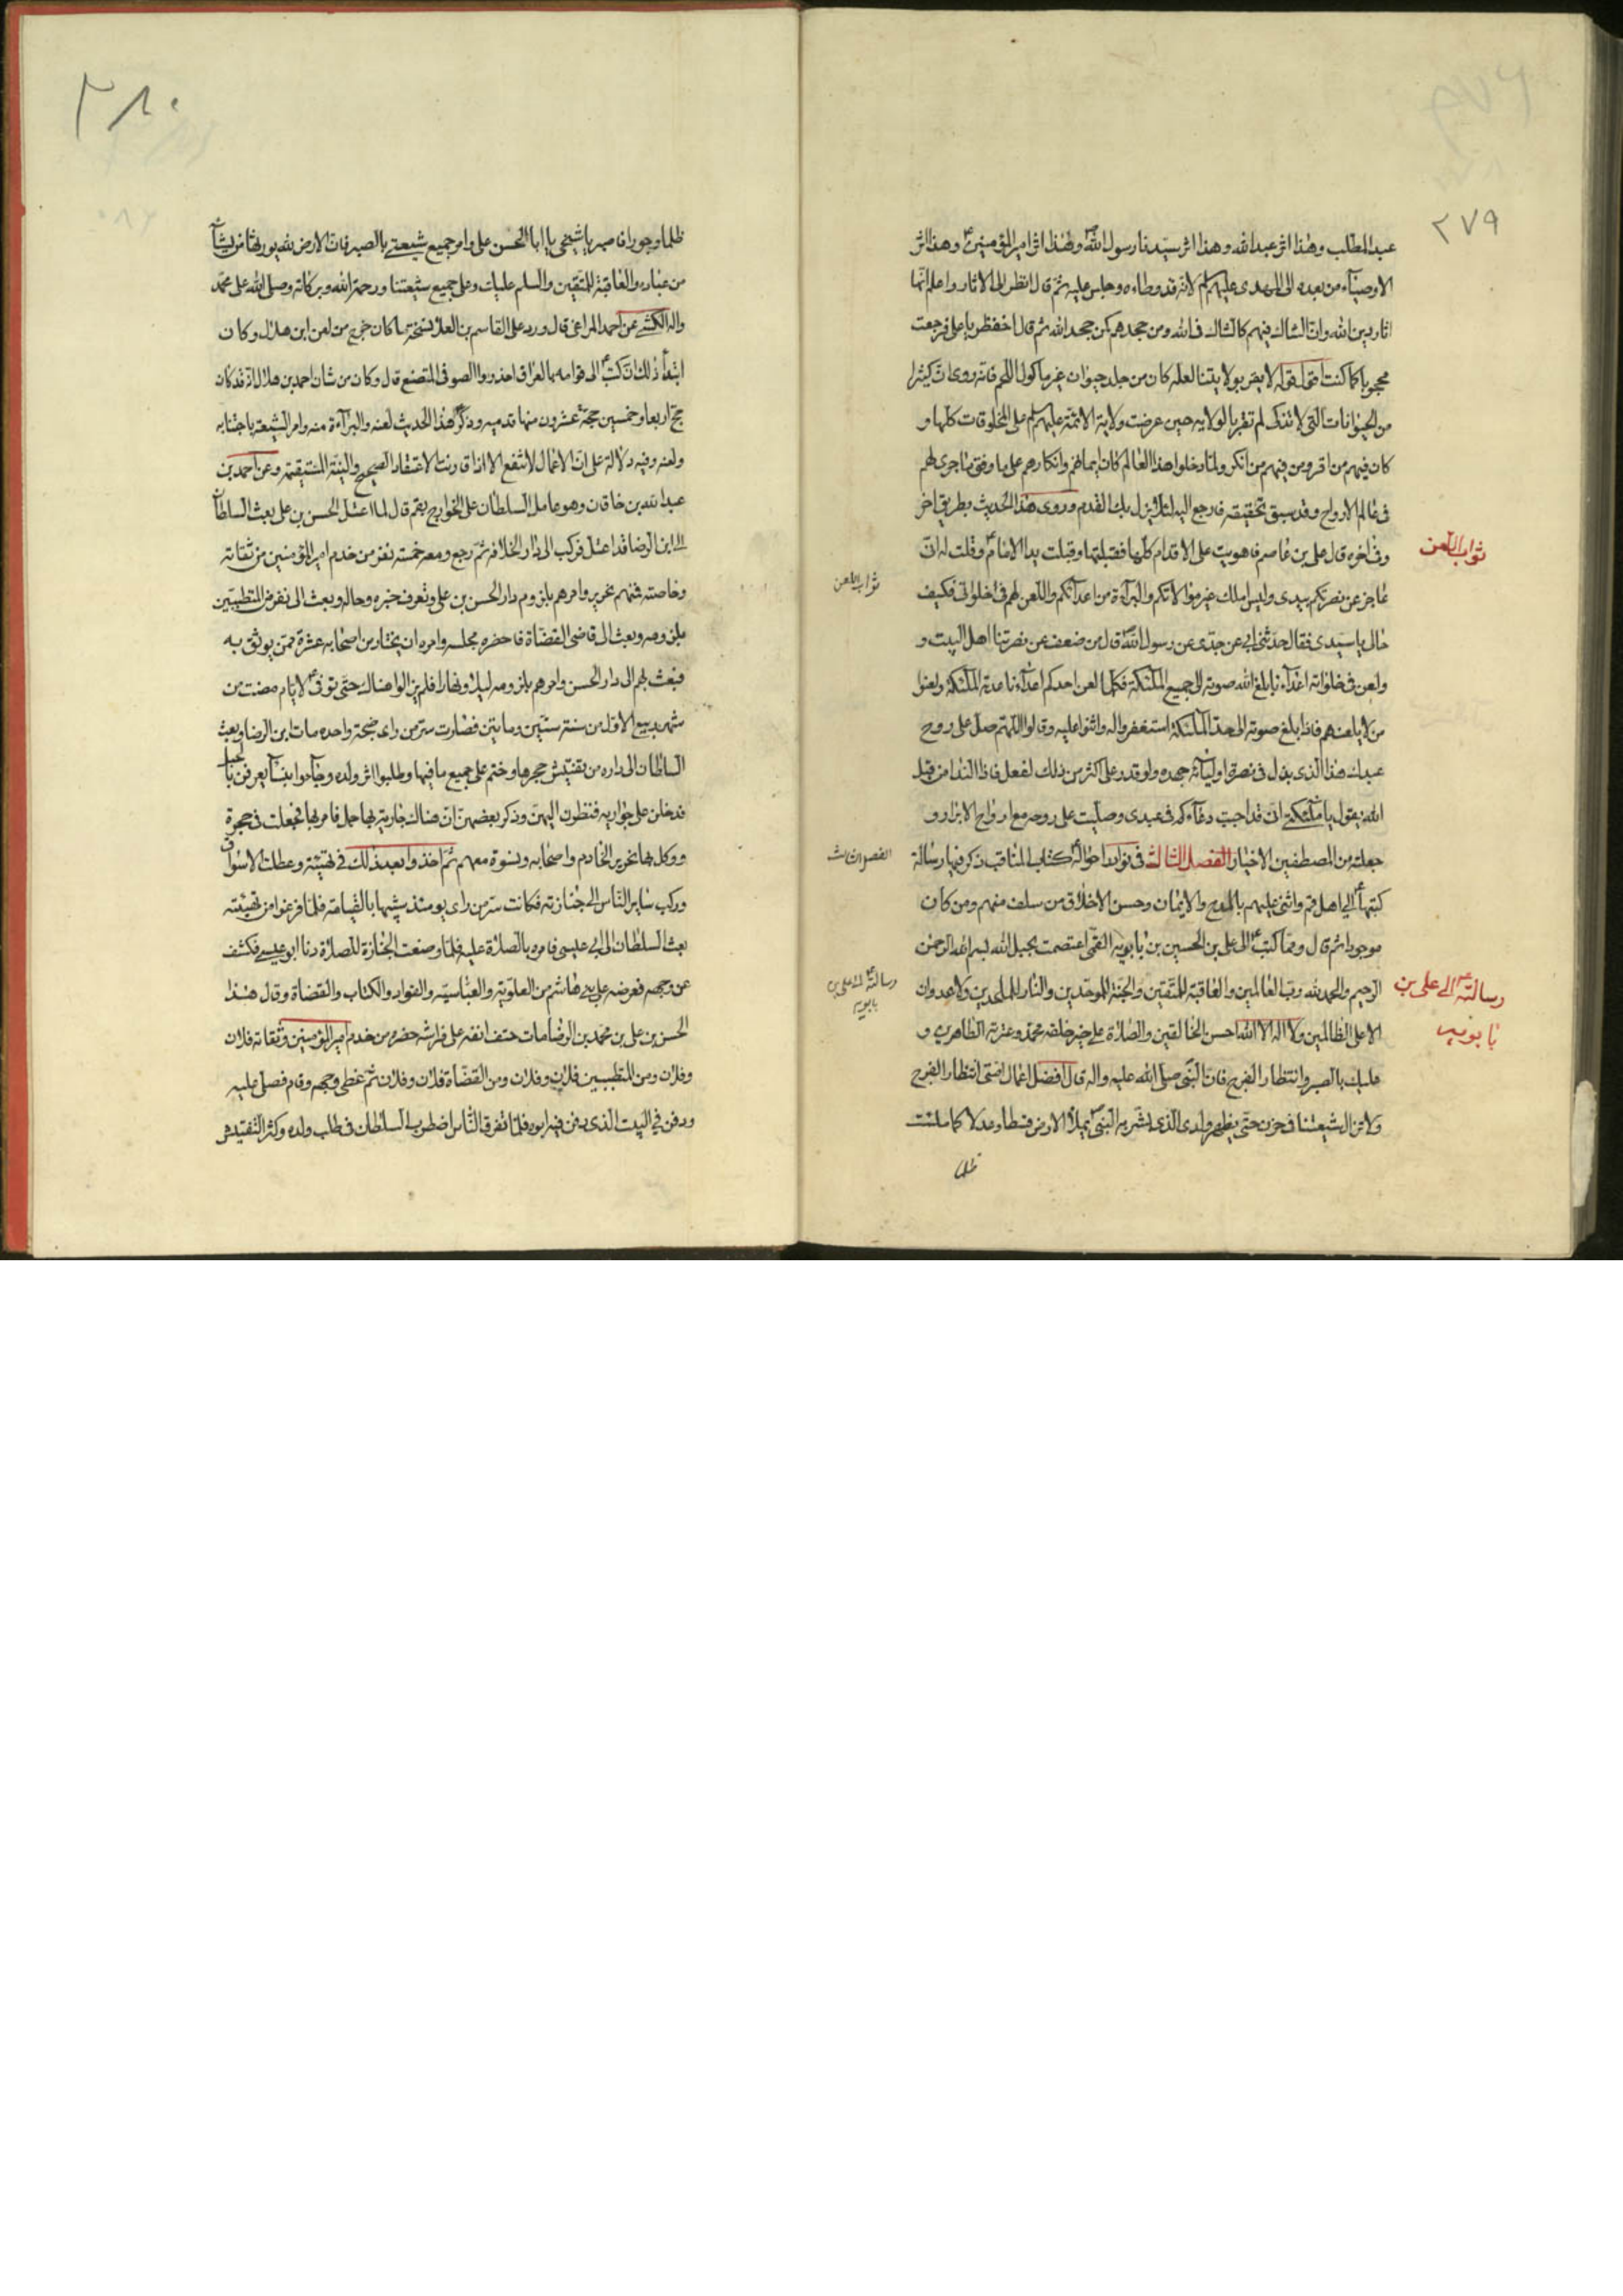 ٢٧٩
عبد المطلب وهذا اثر عبد الله وهذا اثر سيدنا رسول الله ص وهذا اثر امير المؤمنين ع وهذا اثر
الاوصياء من بعده الى المهدى عليهم لم لانه قد وطاءه وجلس عليه ثم قال انظر الى الاثار واعلم انها
اثار دين الله وان الشاك فيهم كالشاك فى الله ومن جحدهم كمن جحد الله ثم قال اخفظر يا على فرجعت
محجوبا كما كنت اعمى لقوله لا يقر بولايتنا لعله كان من جلد حيوان غير ماكول اللحم فانه روى ان كثيرا
من الحيوانات التى لا تذكى لم تقر بالولايه حين عرضت ولاية الائمة عليهم لم على المخلوقات كلها و
كان فيهم من اقر ومن فيهم من انكر ولما دخلوا هذا العالم كان ايمانهم وانكارهم على ما وفق ما جرى لهم
فى عالم الارواح وقد سبق تحقيقه فارجع اليه لئلا يزل بك القدم وروى هذا الحديث بطريق اخر
وفى اخره قال على بن عاصم فاهويت على الاقدام كلها فقبلتها وقبلت يد الامام ع وقلت له انى
ثواب اللعن
عاجز عن نصرتكم بيدى وليس املك غير موالاتكم والبراءة من اعدائكم واللعن لهم فى خلواتى فكيف
ثواب اللعن
حالى يا سيدى فقال حدثنى ابى عن جدى عن رسول الله ص قال من ضعف عن نصرتنا اهل البيت و
ولعن فى خلواته اعداءنا بلغ الله صوته الى جميع الملئكة فكلما لعن احدكم اعداءنا ساعدته الملئكة ولعنوا
من لا يلعنهم فاذا بلغ صوته الى حد الملئكة استغفروا له واثنوا عليه وقالوا اللهم صل على روح
عبدك هذا الذى بذل فى نصرة اوليائه جهده ولو قدر على اكثر من ذلك لفعل فاذا النداء من قبل
الله يقول يا ملئكتى انى قد اجبت دعاءكم فى عبدى وصليت على روحه مع ارواح الابرار و
جعلته من المصطفين الاخيار الفصل الثالث فى نوادر احواله ع كتاب المناقب ذكر فيها رسالة
الفصل الثالث
كتبها ع الى اهل قم واثنى عليهم بالمدح والايمان وحسن الاخلاق من سلف منهم ومن كان
موجودا ثم قال ومما كتب ع الى على بن الحسين بن بابويه القمى اعتصمت بحبل الله بسم الله الرحمن
الرحيم والحمد لله رب العالمين والعاقبة للمتقين والجنة للموحدين والنار للملحدين ولا عدوان
رسالته ع الى على بن
بابويه
رسالته ع الى على بن
بابويه
الا على الظالمين ولا اله الا الله احسن الخالقين والصلاة على خير خلقه محمد وعترته الطاهرين و
عليك بالصبر وانتظار الفرج فان النبى صلى الله عليه واله قال افضل اعمال امتى انتظار الفرج
ولا تزال شيعتنا فى حزن حتى يظهر ولدى الذى بشر به النبى ص يملأ الارض قسطا وعدلا كما ملئت
ظلما
٢٨٠
ظلما وجورا فاصبر يا شيخى يا ابا الحسن على وامر جميع شيعتى بالصبر فان الارض لله يورثها من يشاء
من عباده والعاقبة للمتقين والسلم عليك وعلى جميع شيعتنا ورحمة الله وبركاته وصلى الله على محمد
واله الكشى عن احمد المراغى قال ورد على القاسم بن العلا نسخة ما كان خرج من لعن ابن هلال وكان
ابتداء ذلك ان كتب ع الى قوامه بالعراق احذروا الصوفى المتصنع قال وكان من شان احمد بن هلال انه قد كان
حج اربعا وخمسين حجة عشرون منها على قدميه وذكر هذا الحديث لعنه والبراءة منه وامر الشيعة باجتنابه
ولعنه وفيه دلالة على ان الاعمال لا تنفع الا اذا قارنت الاعتقاد الصحيح والنية المستقيمة وعن احمد بن
عبد الله بن خاقان وهو عامل السلطان على الخوارج بقم قال لما اعتل الحسن بن على بعث السلطان
الى ابن الرضا قد اعتل فركب الى دار الخلافه ثم رجع ومعه خمسة نفر من خدم امير المؤمنين من ثقاته
وخاصته فمنهم نحرير وامرهم بلزوم دار الحسن بن على وتعرف خبره وحاله وبعث الى نفر من المتطببين
بلزومه وبعث الى قاضى القضاة فاحضره مجلسه وامره ان يختار من اصحابه عشرة ممن يوثق به
فبعث بهم الى دار الحسن وامرهم بلزومه ليلا ونهارا فلم يزالوا هناك حتى توفى ع لايام مضت من
شهر ربيع الاول من سنة ستين ومايتين فصارت سر من راى ضجة واحدة مات ابن الرضا وبعث
السلطان الى داره من يفتش حجرها وختم على جميع ما فيها وطلبوا اثر ولده وجاءوا بنساء يعرفن بالحبل
فدخلن على جواريه فنظرن اليهن وذكر بعضهن ان هناك جارية بها حمل فامر بها فجعلت فى حجرة
ووكل بها نحرير الخادم واصحابه ونسوة معهم ثم اخذوا بعد ذلك فى تهيئته وعطلت الاسواق
وركب ساير الناس الى جنازته فكانت سر من راى يومئذ شبيها بالقيامة فلما فرغوا من تهيئته
بعث السلطان الى ابى عيسى فامره بالصلاة عليه فلما وضعت الجنازة للصلاة دنا ابو عيسى فكشف
عن وجهه فعرضه على بنى هاشم من العلوية والعباسية والقواد والكتاب والقضاة وقال هذا
الحسن بن على بن محمد بن الرضا مات حتف انفه على فراشه حضره من خدم امير المؤمنين وثقاته فلان
وفلان ومن المتطببين فلان وفلان ومن القضاة فلان وفلان ثم غطى وجهه وقام فصلى عليه
ودفن في البيت الذى دفن فيه ابوه فلما تفرق الناس اضطرب السلطان فى طلب ولده وكثر التفتيش